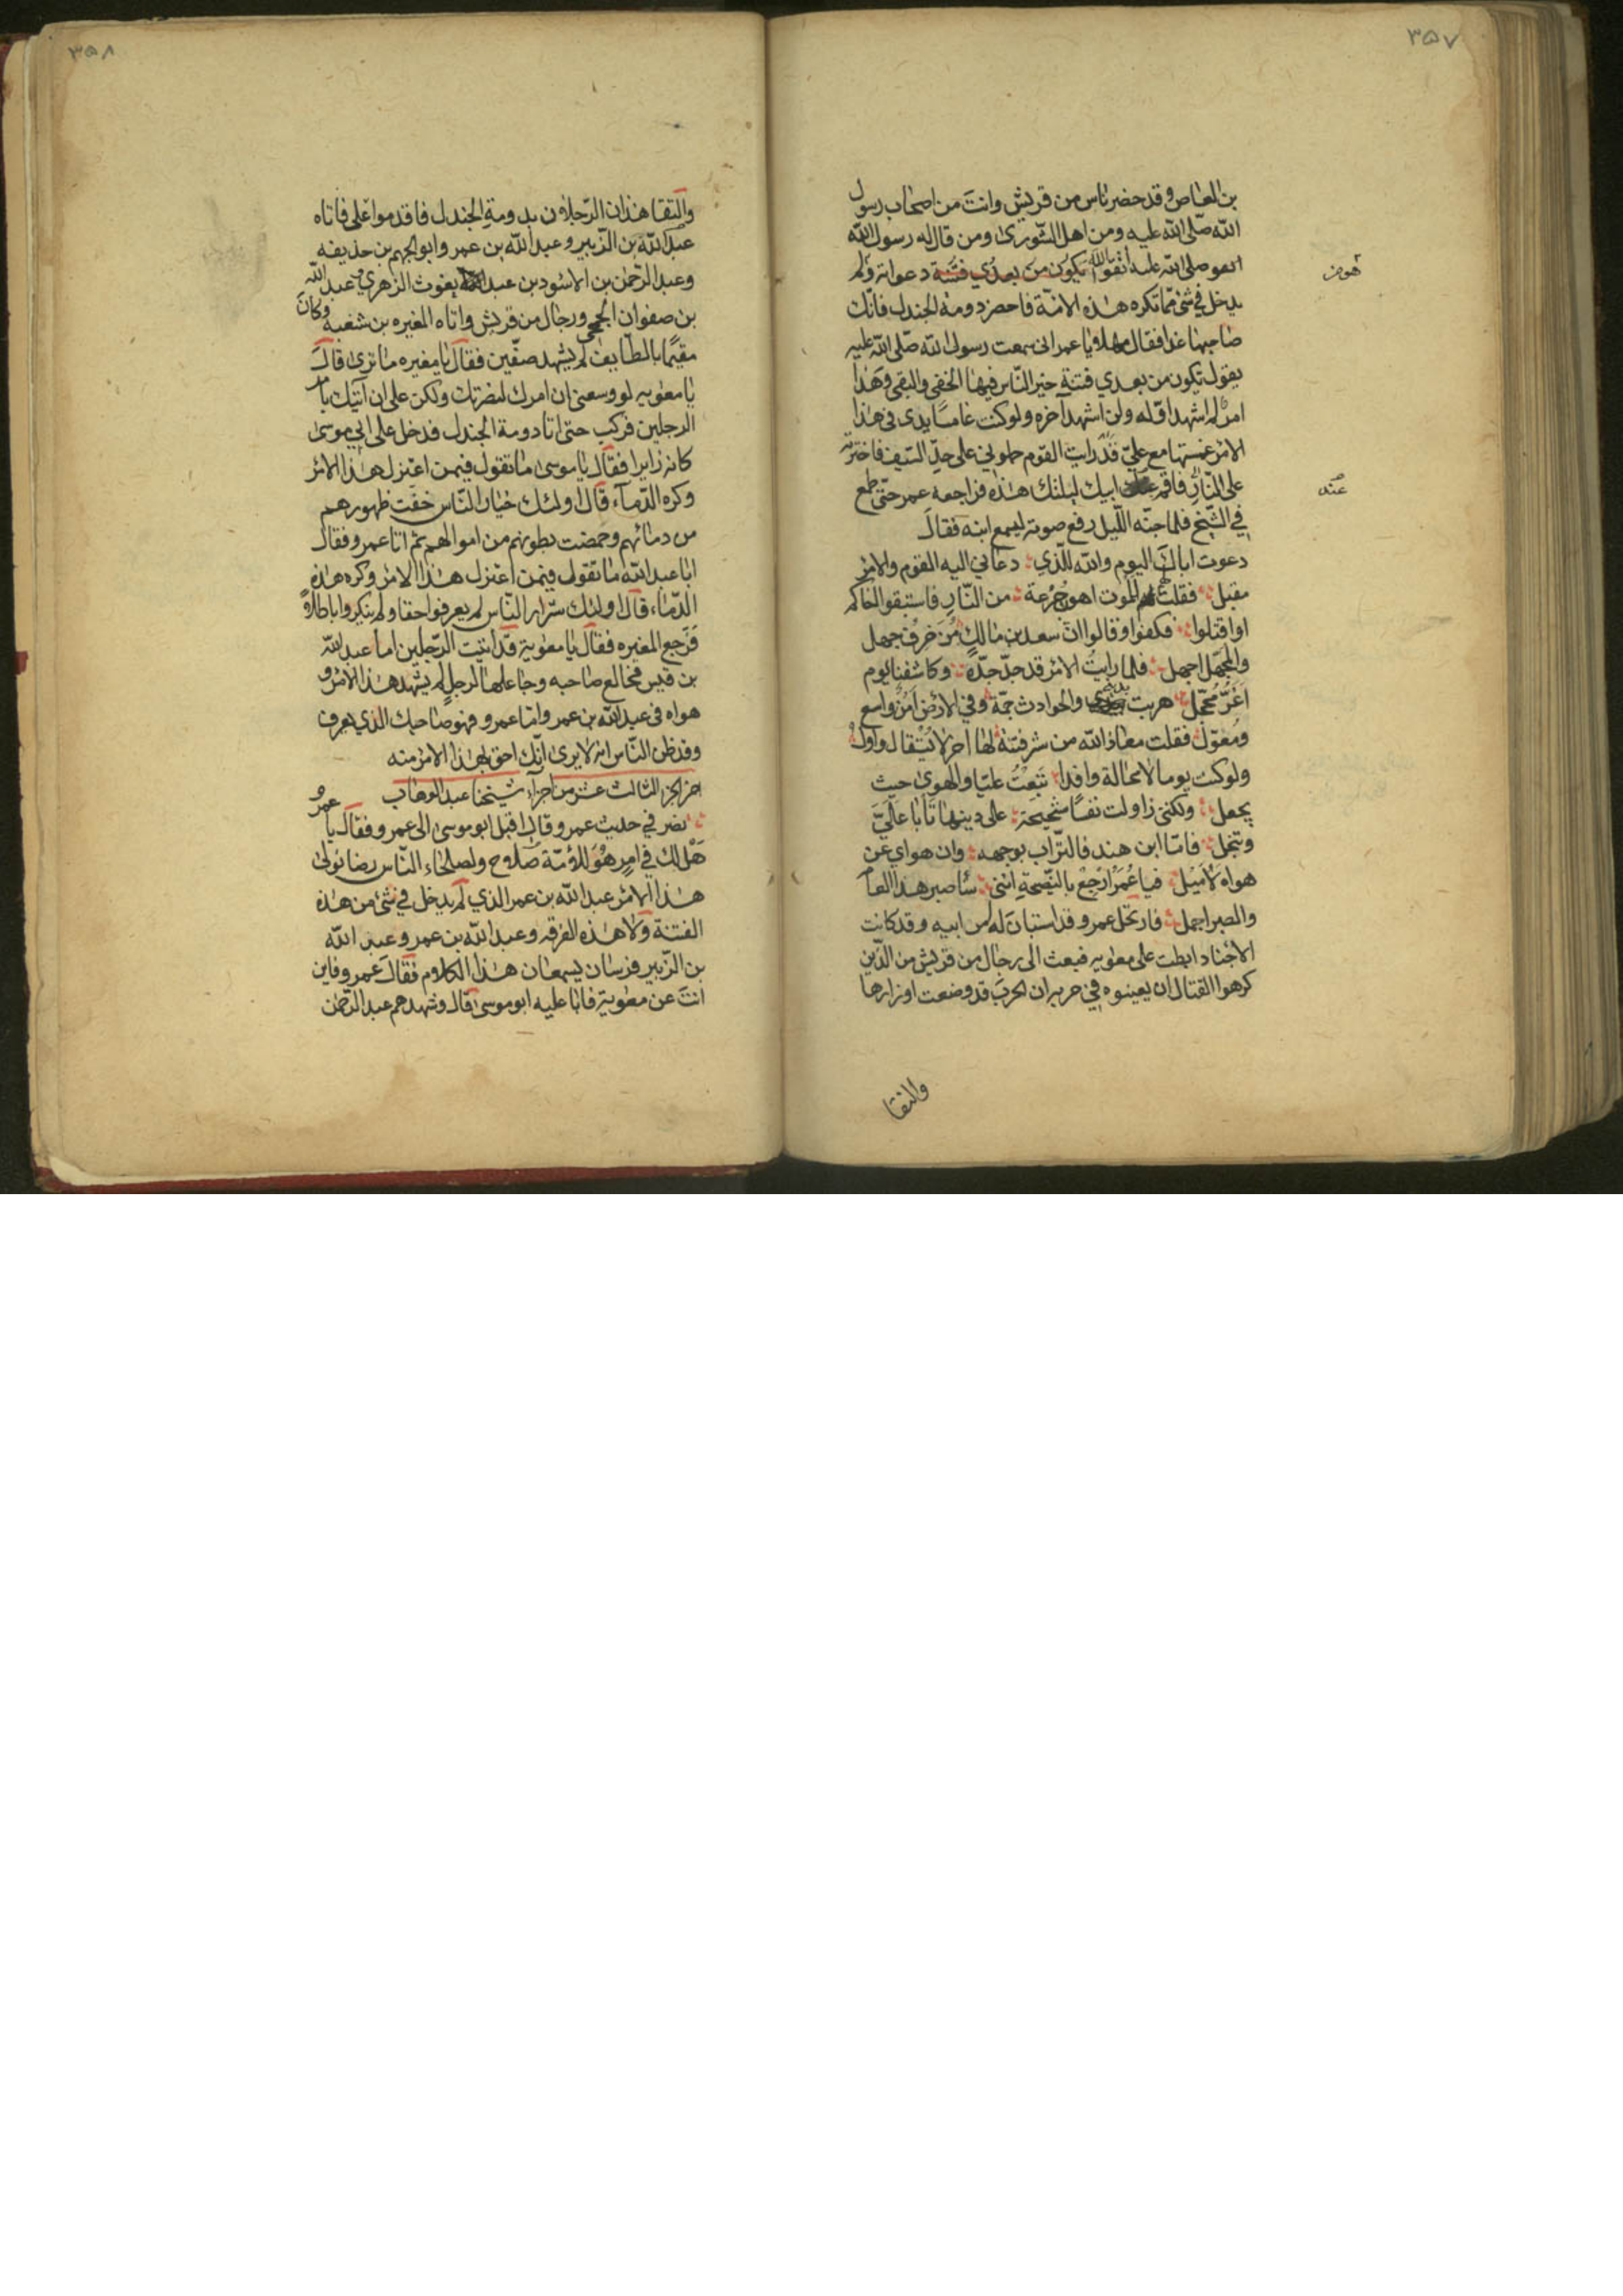 ٣٥٧
بن العاص وقد حضر ناس من قريش وانت من اصحاب رسول
الله صلى الله عليه ومن اهل الشورى ومن قال له رسول الله
صلى الله عليه اتقوا تكون من بعدي فتنة ولم
يدخل في شئ مما تكره هذه الامة فاحضر دومة الجندل فانك
صاحبها غدا فقال مهلا يا عمر انى سمعت رسول الله صلى الله عليه
يقول تكون من بعدي فتنة خير الناس فيها الخفي والتقي وهذا
امر لم اشهد اوله ولن اشهد آخره ولو كنت غامسا يدى في هذا
الامر غمستها مع علي قد رايت القوم حملوني على حد السيف فاخترته
على النار فاقم عند ابيك ليلتك هذه فراجعه عمر حتى طمع
في الشيخ فلما جنه الليل رفع صوته ليسمع ابنه فقال
دعوت اباك اليوم والله للذي دعاني اليه القوم والامر
مقبل فقلت لهم للموت اهون جرعة من النار فاستبقوا اخاكم
او اقتلوا فكفوا وقالوا ان سعد بن مالك مزخرف جهل
والجهل اجهل فلما رايت الامر قد جد جده وكاشفنا يوم
اغر محجل هربت بديني والحوادث جمة وفي الارض امن واسع
ومعول فقلت معاذ الله من شر فتنة لها آخر لا يستقال واول
ولو كنت يوما لا محالة وافدا تبعت عليا والهوى حيث
يجعل ولكنني زاولت نفسا شحيحة على دينها تابا علي
وتبخل فاما ابن هند فالتراب بوجهه وان هواي عن
هواه لاميل فيا عمر ارجع بالنصيحة انني ساصبر هذا العام
والصبر اجمل فارتحل عمر وقد استبان له امر ابيه وقد كانت
الاخبار ابطت على معويه فبعث الى رجال من قريش من الذين
كرهوا القتال ان يعينوه في حربه ان الحرب قد وضعت اوزارها
والتقا
هون
عند
٣٥٨
والتقا هذان الرجلان بدومة الجندل فاقدموا على فاتاه
عبد الله بن الزبير وعبد الله بن عمر وابو الجهم بن حذيفه
وعبد الرحمن بن الاسود بن عبد يغوث الزهري وعبد الله
بن صفوان الجمحى ورجال من قريش واتاه المغيره بن شعبه وكان
مقيما بالطايف لم يشهد صفين فقال يا مغيره ما ترى قال
يا معويه لو وسعنى ان امرك لنصرتك ولكن على ان آتيك بامر
الرجلين فركب حتى اتا دومة الجندل فدخل على ابي موسى
كانه زايرا فقال يا موسى ما تقول فيمن اعتزل هذا الامر
وكره الدماء قال اولئك خيار الناس خفت ظهورهم
من دمائهم وخمصت بطونهم من اموالهم ثم اتا عمرو فقال
ابا عبد الله ما تقول فيمن اعتزل هذا الامر وكره هذه
الدماء قال اولئك شرار الناس لم يعرفوا حقا ولم ينكروا باطلا
فرجع المغيره فقال يا معوية قد اتيت الرجلين اما عبد الله
بن قيس فخالع صاحبه وجاعلها لرجل لم يشهد هذا الامر و
هواه في عبد الله بن عمر واما عمرو فهو صاحبك الذي يعرف
وقد ظن الناس انه لا يرى انك احق بهذا الامر منه
اخر الجزء الثالث عشر من اجزاء شيخنا عبد الوهاب
نصر في حديث عمرو قال اقبل ابو موسى الى عمرو فقال يا عمرو
هل لك في امر هو للامة صلاح ولصلحاء الناس رضا نولى
هذا الامر عبد الله بن عمر الذي لم يدخل في شئ من هذه
الفتنة ولا هذه الفرقه وعبد الله بن عمر وعبد الله
بن الزبير قريبان يسمعان هذا الكلام فقال عمرو فاين
انت عن معوية فابا عليه ابو موسى قال وشهدهم عبد الرحمن